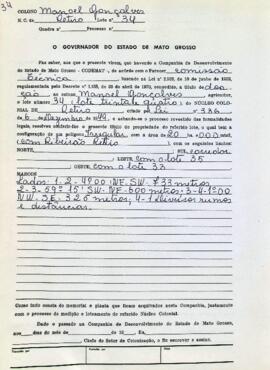 34
COLONO Manoel Gonçalves
N. C. Retiro Lote n.º 34
Quadra n.º Processo n.º
O GOVERNADOR DO ESTADO DE MATO GROSSO
Faz saber, aos que o presente virem, que havendo a Companhia de Desenvolvimento
do Estado de Mato Grosso - CODEMAT - de acôrdo com o Parecer comissão
Técnica
ao Manoel Gonçalves, agricultor
o lote número 34 (lote trinta e quatro), do NÚCLEO COLO-
NIAL de Retiro, criado pela Lei n.º 336
de 6 de Dezembro de 1949, e achando o processo revestido das formalidades
legais, resolveu conferir-lhe o presente título de propriedade do referido lote, o qual tem a
configuração de um polígono Irregular com a área de 20 ha + 000 m2
(com Ribeirão Retiro), com os seguintes limites:
NORTE, SUL, corredor
LESTE com o lote 35
OESTE, com o lote 33
MARCOS
Lados: 1.2-4º00' NE.SW. 733 metros
2-3. 59º 15' SW. NE. 600 metros; 3-4-1º00
NW. SE. 326 metros; 4-1 diversos rumos
e distâncias.
Como tudo consta do memorial e planta que ficam arquivados nesta Companhia, juntamente
com o processo de medição e loteamento do referido Núcleo Colonial.
Dado e passado na Companhia de Desenvolvimento do Estado de Mato Grosso,
aos dias do mês de do ano de 19 Eu,
Chefe do Setor de Colonização, o fiz escrever e assino.